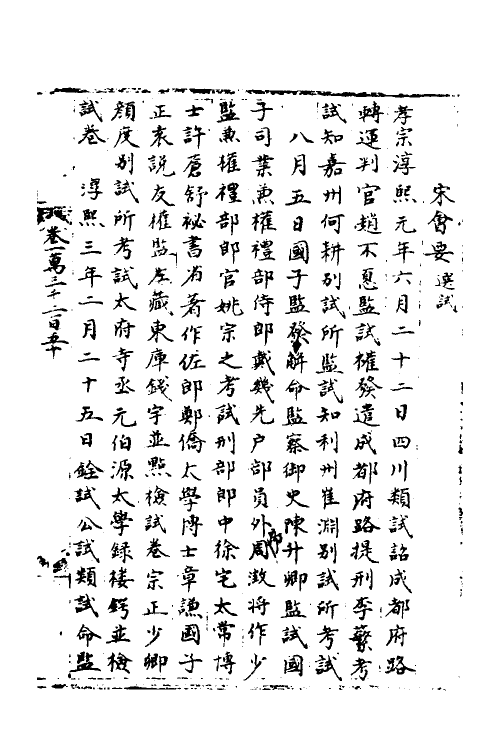 宋會要 選試
孝宗淳熙元年六月二十二日四川類試詔成都府路
轉運判官趙不惪監試權發遣成都府路提刑李蘩考
試知嘉州何耕別試所監試知利州崔淵別試所考試
八月五日國子監發解命監察御史陳升卿監試國
子司業兼權禮部侍郎戴幾先戶部員外周澂將作少
監兼權禮部郎官姚宗之考試刑部郎中徐宅太常博
士許蒼舒祕書省著作佐郎鄭僑太學博士章謙國子
正袁說友權監左藏東庫錢宇並點檢試卷宗正少卿
顏度別試所考試太府寺丞元伯源太學錄樓鍔並檢
試卷 淳熙三年二月二十五日銓試公試類試命監
卷一萬三千二百五十